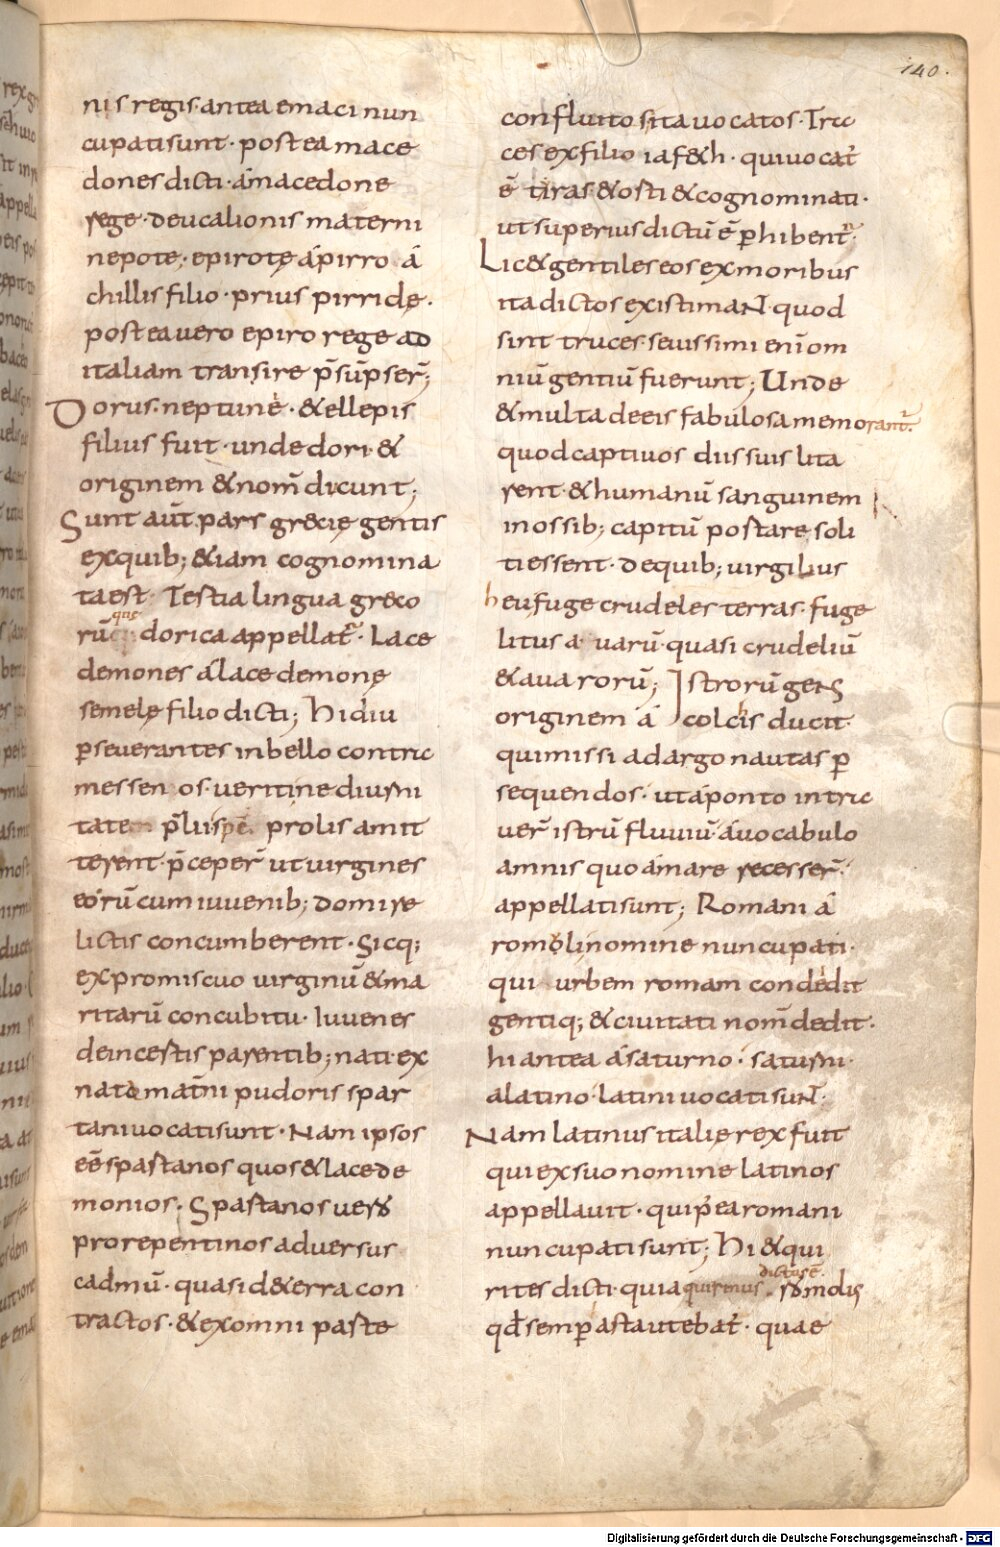 140.
nis regis. antea emaci nun
cupati sunt. postea mace
dones dicti. a macedone
rege. deucalionis materni
nepote; epirotę á pirro á
chillis filio. prius pirridę.
postea uero epiro rege ad
italiam transire p̄supser̄;
Dorus. neptune. & ellepis
filius fuit. unde dori. &
originem & nom̄ ducunt;
Sunt aūt. pars grecię gentis
ex quib; & iam cognomina
ta est. Testia lingua greco
rū que dorica appellat̄. Lace
demones a lacedemonę
semelę filio dicti; Hi diu
perseuerantes in bello contra
messenios. ueritine diurni
tate p̄lii spē. prolis amit
terent. p̄ceper̄ ut uirgines
eorū cum iuuenib; domi re
lictis concumberent. Sicq;
ex promiscuo uirginū & ma
ritarū concubitu. Iuuenes
de incestis parentib; nati. ex
nato mat̄ni pudoris spar
tani uocati sunt. Nam ipsos
eē spartanos quos & lacede
monios. Spartanos uero
pro repentinos aduersus
cadmū. quasi d& erra con
tractos. & ex omni parte
confluito sita uocatos. Tra
ces ex filio iaf&h. qui uocat̄
ē tiras & osti & cognominati.
ut superius dictū ē p̱hibent̄.
Lic& gentiles eos ex moribus
ita dictos existimant. quod
sint truces. seuissimi enī om
niū gentiū fuerunt; Unde
& multa de eis fabulosa memorant̄.
quod captiuos diis suis lita
rent. & humanū sanguinem
in ossib; capitū potare soli
ti essent. de quib; uirgilius
heu fuge crudeles terras. fuge
litus auarū. quasi crudeliū
& auarorū; Istrorū gens
originem á colchis ducit.
qui missi ad argonautas p̱
sequendos. ut á ponto intra
uer̄ istrū fluuiū. á uocabulo
amnis quo á mare recesser̄.
appellati sunt; Romani á
romoli nomine nuncupati.
qui urbem romam condedit
gentiq; & ciuitati nom̄ dedit.
hi antea á saturno. saturni.
a latino. latini uocati sunt̄.
Nam latinus italię rex fuit
qui ex suo nomine latinos
appellauit. qui p̄ea romani
nuncupati sunt; Hi & qui
rites dicti. quia quirinus dictus ē. romolus
qd̄ semp̱ asta utebat̄. quae
Digitalisierung gefördert durch die Deutsche Forschungsgemeinschaft - DFG